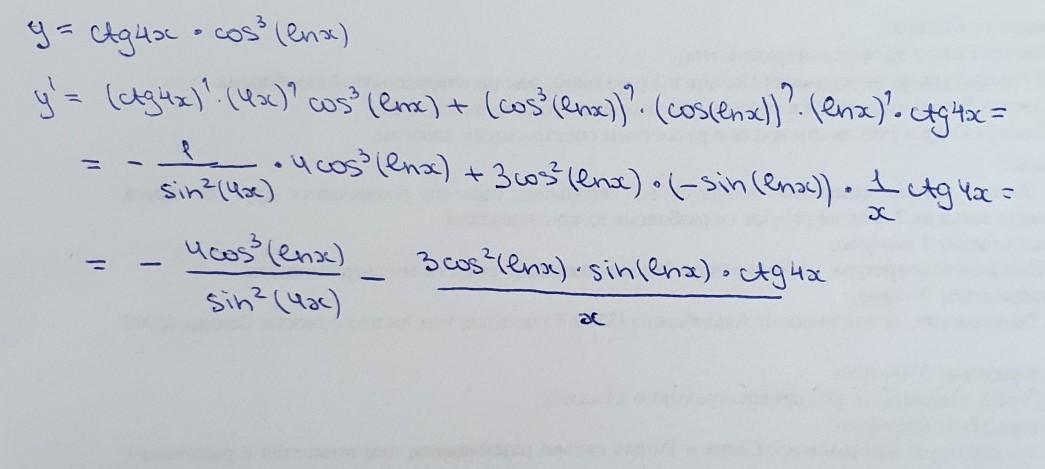 y = ctg4x · cos³(lnx)
y' = (ctg4x)' · (4x)' cos³(lnx) + (cos³(lnx))' · (cos(lnx))' · (lnx)' · ctg4x =
= - 1/sin²(4x) · 4cos³(lnx) + 3cos²(lnx) · (-sin(lnx)) · 1/x ctg4x =
= - 4cos³(lnx)/sin²(4x) - 3cos²(lnx) · sin(lnx) · ctg4x/x